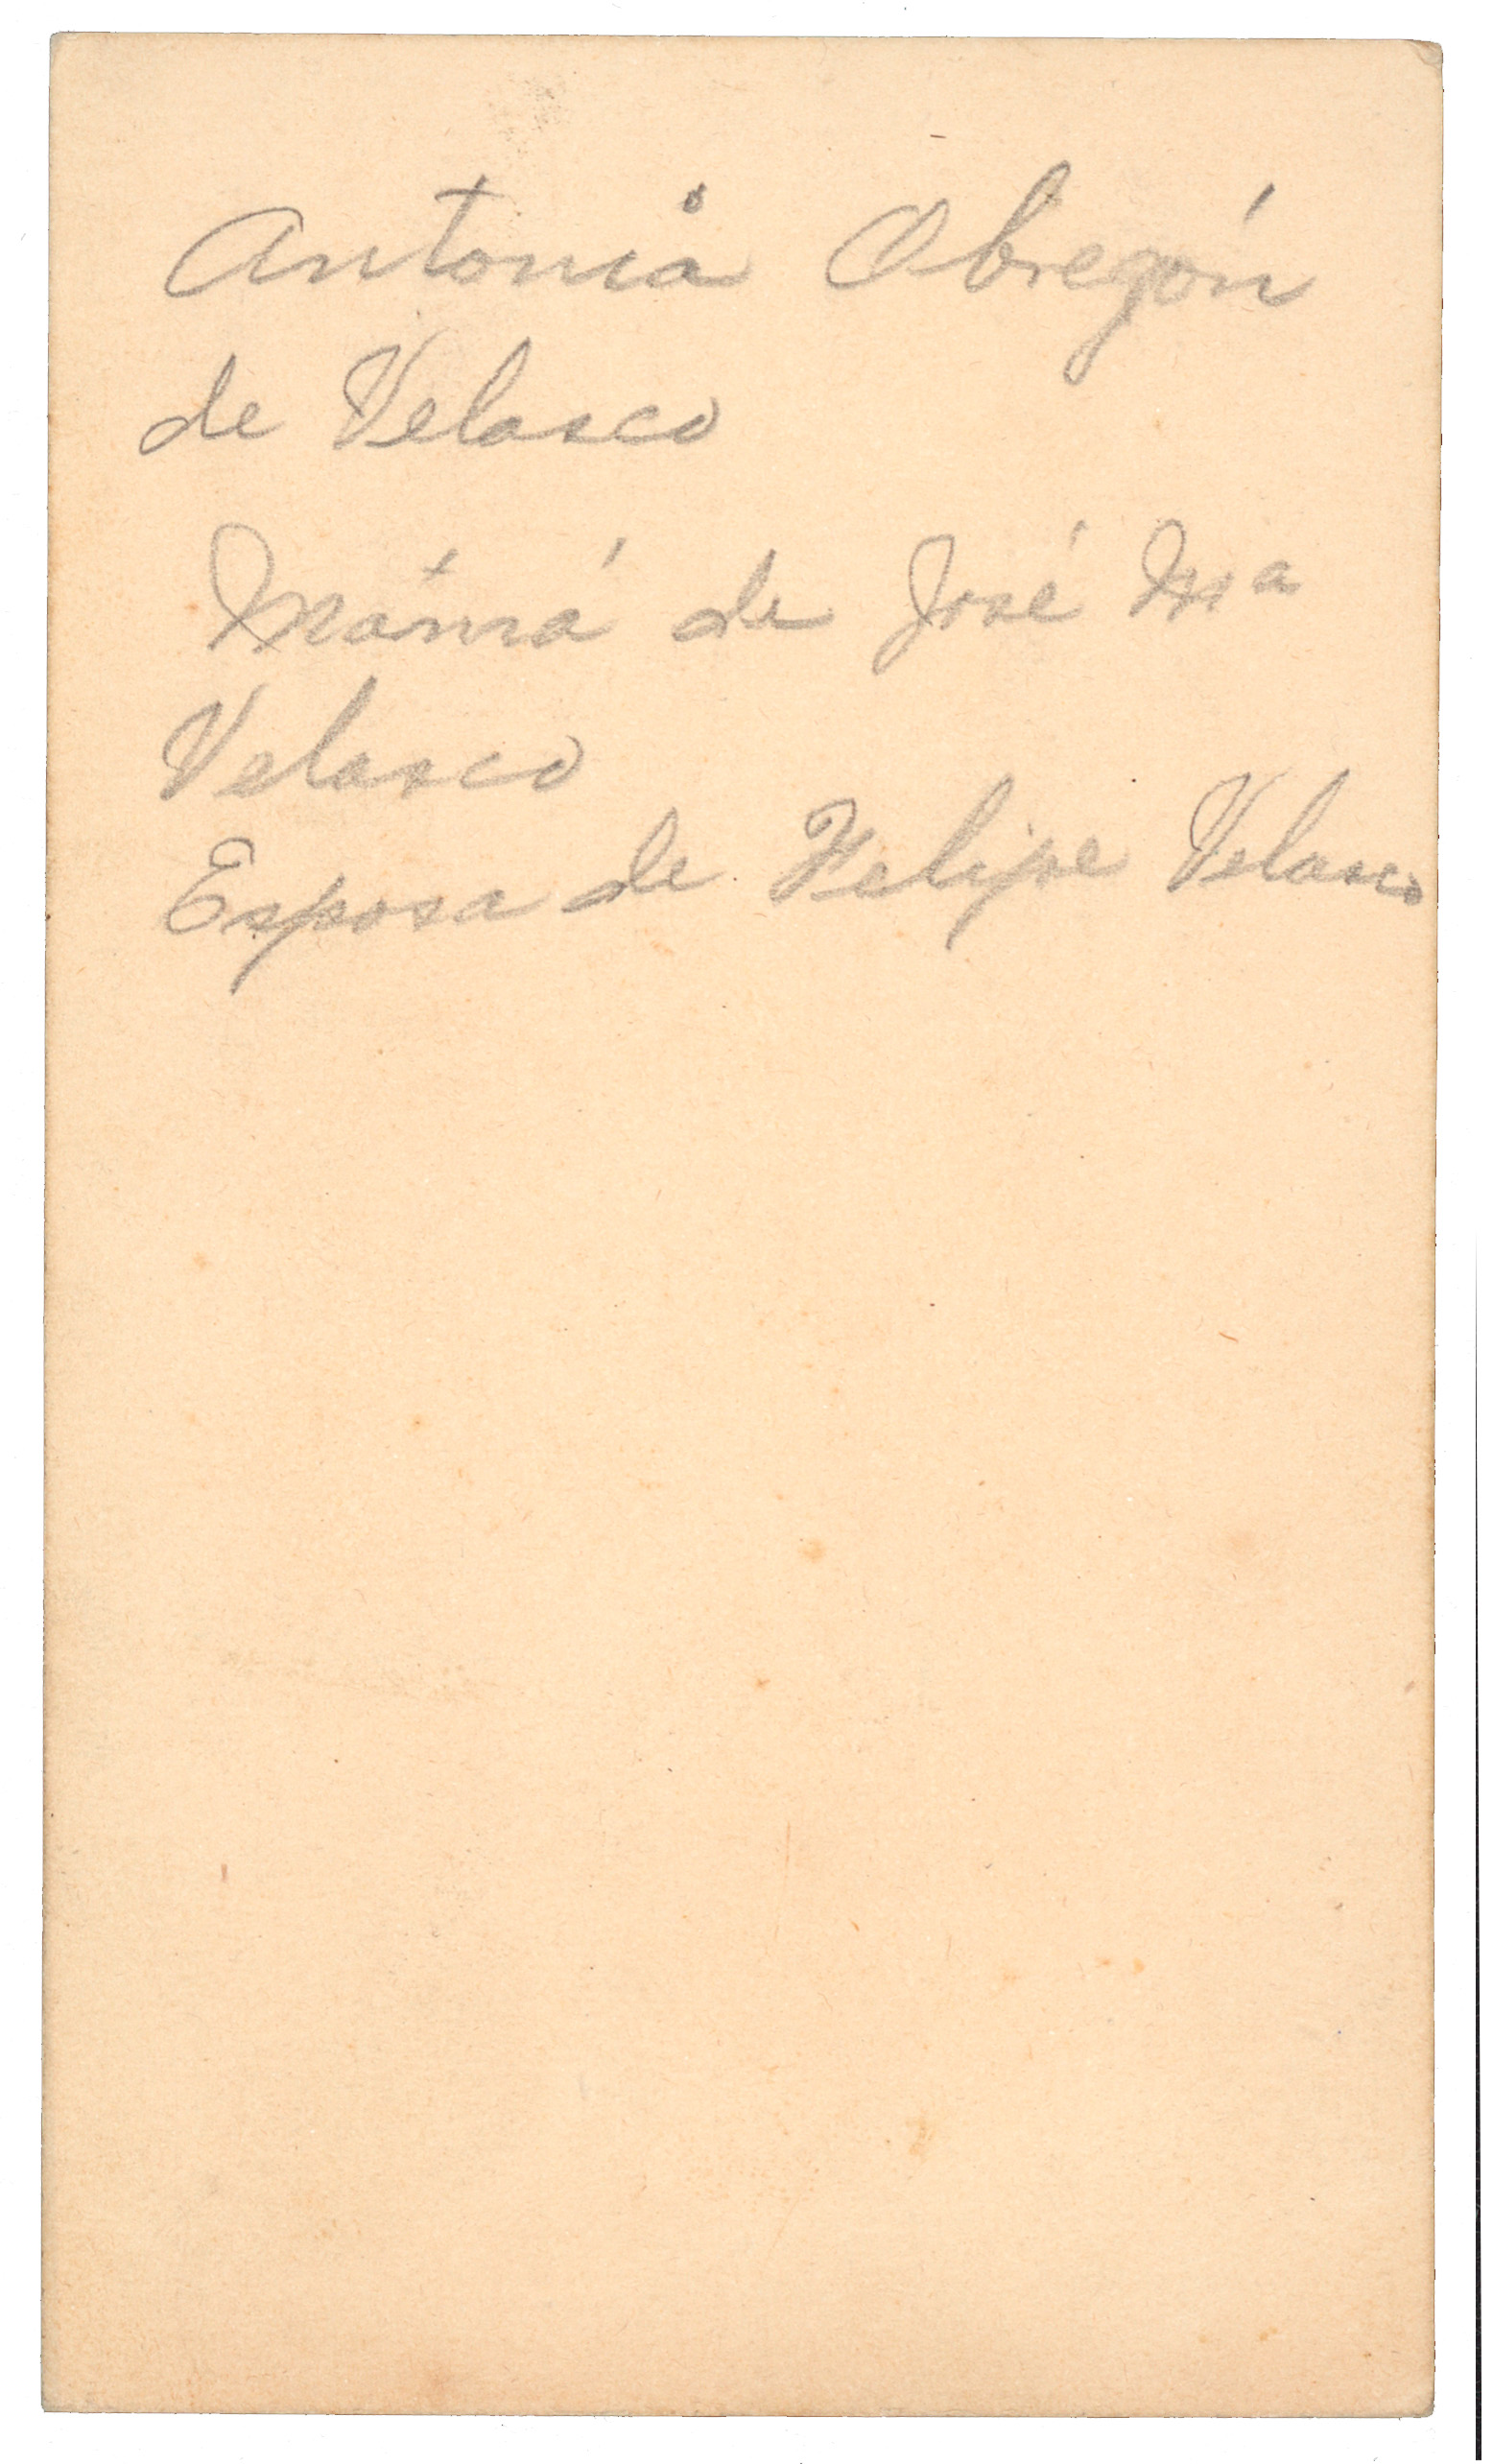 Antonia Obregón
de Velasco
Mamá de José Mª
Velasco
Esposa de Felipe Velasco